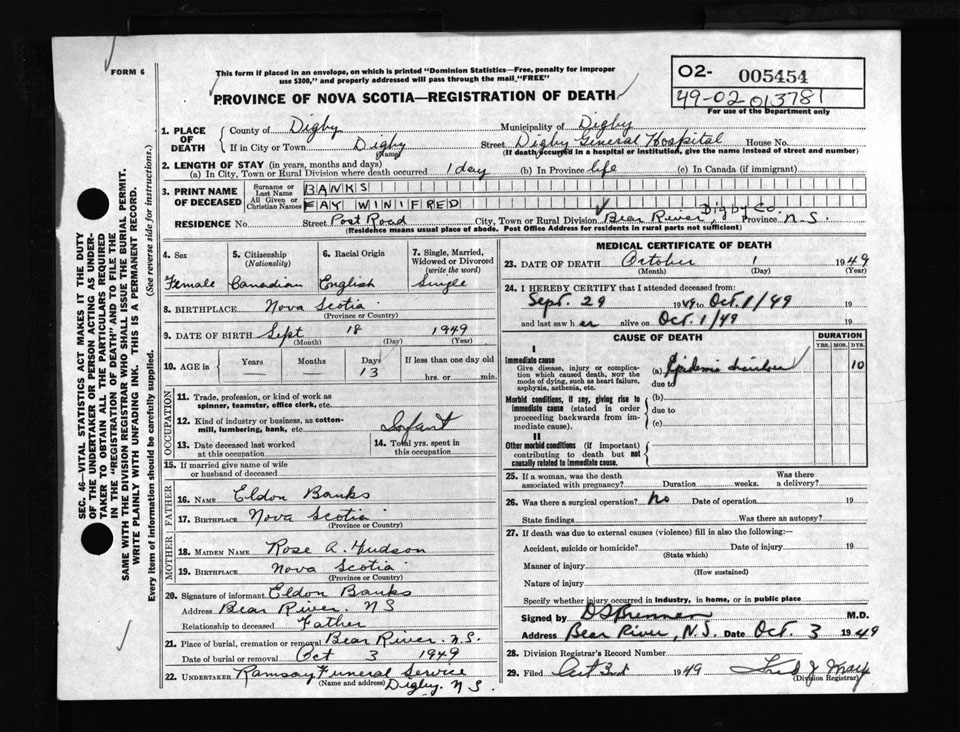 FORM 6
This form if placed in an envelope, on which is printed "Dominion Statistics—Free, penalty for improper
use $300," and properly addressed will pass through the mail, "FREE"
PROVINCE OF NOVA SCOTIA—REGISTRATION OF DEATH
02- 005454
49-02 013781
For use of the Department only
1. PLACE OF DEATH
County of Digby Municipality of Digby
If in City or Town Digby (Name) Street Digby General Hospital House No.
(If death occurred in a hospital or institution, give the name instead of street and number)
2. LENGTH OF STAY (in years, months and days)
(a) In City, Town or Rural Division where death occurred 1 day (b) In Province life (c) In Canada (if immigrant)
3. PRINT NAME OF DECEASED
Surname or Last Name BANKS
All Given or Christian Names FAY WINIFRED
RESIDENCE No. Street Post Road City, Town or Rural Division Bear River, Digby Co. Province N.S.
(Residence means usual place of abode. Post Office Address for residents in rural parts not sufficient)
4. Sex Female
5. Citizenship (Nationality) Canadian
6. Racial Origin English
7. Single, Married, Widowed or Divorced (write the word) Single
8. BIRTHPLACE Nova Scotia
(Province or Country)
9. DATE OF BIRTH Sept 18 1949
(Month) (Day) (Year)
10. AGE in Years Months Days 13 If less than one day old hrs. or min.
OCCUPATION
11. Trade, profession, or kind of work as spinner, teamster, office clerk, etc.
12. Kind of industry or business, as cotton-mill, lumbering, bank, etc. Infant
13. Date deceased last worked at this occupation
14. Total yrs. spent in this occupation
15. If married give name of wife or husband of deceased
FATHER
16. NAME Eldon Banks
17. BIRTHPLACE Nova Scotia
(Province or Country)
MOTHER
18. MAIDEN NAME Rose A. Hudson
19. BIRTHPLACE Nova Scotia
(Province or Country)
20. Signature of informant Eldon Banks
Address Bear River. NS
Relationship to deceased Father
21. Place of burial, cremation or removal Bear River. N.S.
Date of burial or removal Oct 3 1949
22. UNDERTAKER Ramsay Funeral Service
(Name and address) Digby. N.S.
MEDICAL CERTIFICATE OF DEATH
23. DATE OF DEATH October 1 1949
(Month) (Day) (Year)
24. I HEREBY CERTIFY that I attended deceased from:
Sept. 29 1949 to Oct. 1/49 19
and last saw her alive on Oct. 1/49 19
CAUSE OF DEATH
DURATION
YRS. MOS. DYS.
I
Immediate cause
Give disease, injury or complication which caused death, NOT the mode of dying, such as heart failure, asphyxia, asthenia, etc.
(a) Epidemic 10
due to
Morbid conditions, if any, giving rise to immediate cause (stated in order proceeding backwards from immediate cause).
(b)
due to
(c)
II
Other morbid conditions (if important) contributing to death but not causally related to immediate cause.
25. If a woman, was the death associated with pregnancy? Duration weeks. Was there a delivery?
26. Was there a surgical operation? No Date of operation 19
State findings Was there an autopsy?
27. If death was due to external causes (violence) fill in also the following:—
Accident, suicide or homicide? Date of injury 19
(State which)
Manner of injury
(How sustained)
Nature of injury
Specify whether injury occurred in industry, in home, or in public place
Signed by M.D.
Address Bear River, N.S. Date Oct. 3 1949
28. Division Registrar's Record Number
29. Filed Oct 3rd 1949
(Division Registrar)
SEC. 46—VITAL STATISTICS ACT MAKES IT THE DUTY
OF THE UNDERTAKER OR PERSON ACTING AS UNDER-
TAKER TO OBTAIN ALL THE PARTICULARS REQUIRED
IN THE "REGISTRATION OF DEATH" AND TO FILE THE
SAME WITH THE DIVISION REGISTRAR WHO SHALL ISSUE THE BURIAL PERMIT.
WRITE PLAINLY WITH UNFADING INK. THIS IS A PERMANENT RECORD.
Every item of information should be carefully supplied. (See reverse side for instructions.)